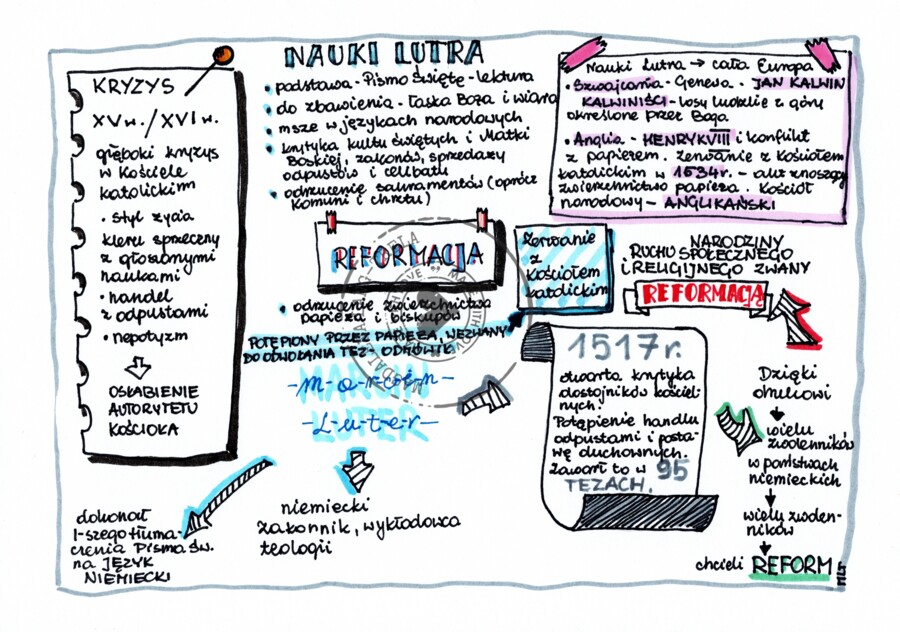 KRYZYS
XVw./XVIw.
głęboki kryzys
w Kościele
katolickim
• styl życia
kleru sprzeczny
z głoszonymi
naukami
• handel
z odpustami
• nepotyzm
OSŁABIENIE
AUTORYTETU
KOŚCIOŁA
NAUKI LUTRA
• podstawa - Pismo Święte - lektura
• do zbawienia - łaska Boża i wiara
• msze w językach narodowych
• krytyka kultu świętych i Matki
Boskiej, zakonów, sprzedaży
odpustów i celibatu
• odrzucenie sakramentów (oprócz
Komunii i chrztu)
REFORMACJA
• odrzucenie zwierzchnictwa
papieża i biskupów
POTĘPIONY PRZEZ PAPIEŻA, WEZWANY
DO ODWOŁANIA TEZ - ODMÓWIŁ
- M-a-r-c-i-n -
- L-u-t-e-r -
niemiecki
zakonnik, wykładowca
teologii
dokonał
I-szego tłuma-
czenia Pisma św.
na JĘZYK
NIEMIECKI
Nauki Lutra → cała Europa
• Szwajcaria - Genewa - JAN KALWIN
KALWINIŚCI - losy ludzkie z góry
określone przez Boga
• Anglia - HENRYK VIII i konflikt
z papieżem. Zerwanie z Kościołem
katolickim w 1534r. - akt znoszący
zwierzchnictwo papieża. Kościół
narodowy - ANGLIKAŃSKI
Zerwanie
z
Kościołem
katolickim
NARODZINY
RUCHU SPOŁECZNEGO
i RELIGIJNEGO ZWANY
REFORMACJĄ
1517r.
otwarta krytyka
dostojników kościel-
nych.
Potępienie handlu
odpustami i posta-
wę duchownych.
Zawarł to w 95
TEZACH.
Dzięki
drukowi
wielu
zwolenników
w państwach
niemieckich
wielu zwolen-
ników
chcieli REFORM
MŁT